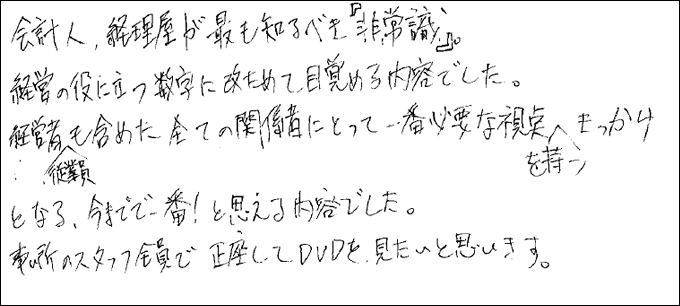 会計人、経理屋が最も知るべき『非常識』。
経営の役に立つ数字に改ためて目覚める内容でした。
経営者、従業員も含めた全ての関係者にとって一番必要な視点を持つきっかけ
となる、今までで一番！と思える内容でした。
事ム所のスタッフ全員で正座してDVDを見たいと思います。